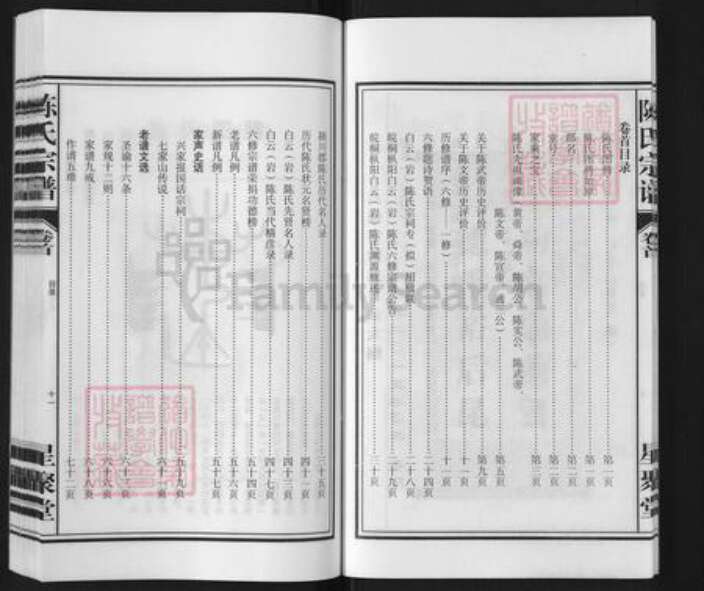 陈氏宗谱
卷首
星聚堂
卷首目录
陈氏图腾……第一页
陈氏图腾
郡名……第二页
堂号……第二页
家乘之宝……第三页
陈氏先祖画像（黄帝、舜帝、陈胡公、陈实公、陈武帝、
陈文帝、陈宣帝、遇公）……第五页
关于陈武帝历史评价……第九页
关于陈文帝历史评价……十一页
历修谱序（六修——一修）……十一页
六修题诗赞语……二十四页
白云（岩）陈氏宗祠
皖桐枞阳白云（岩）陈氏六修宗谱公告……二十九页
皖桐枞阳白云（岩）陈氏渊源概述……三十页
颍川郡陈氏历代名人录……三十五页
历代陈氏状元名贤榜……四十二页
白云（岩）陈氏先贤名人录……四十三页
白云（岩）陈氏当代精彦录……四十七页
六修宗谱荣捐功德榜……五十四页
老谱凡例……五十六页
新谱凡例……五十七页
家声史话
兴家报国话宗祠……五十九页
七家山传说
老谱文选
圣谕十六条
家规十二则……六十六页
家谱九戒……六十八页
作谱五难……七十二页
陈氏宗谱
卷首
目录
十一
星聚堂
FamilySearch